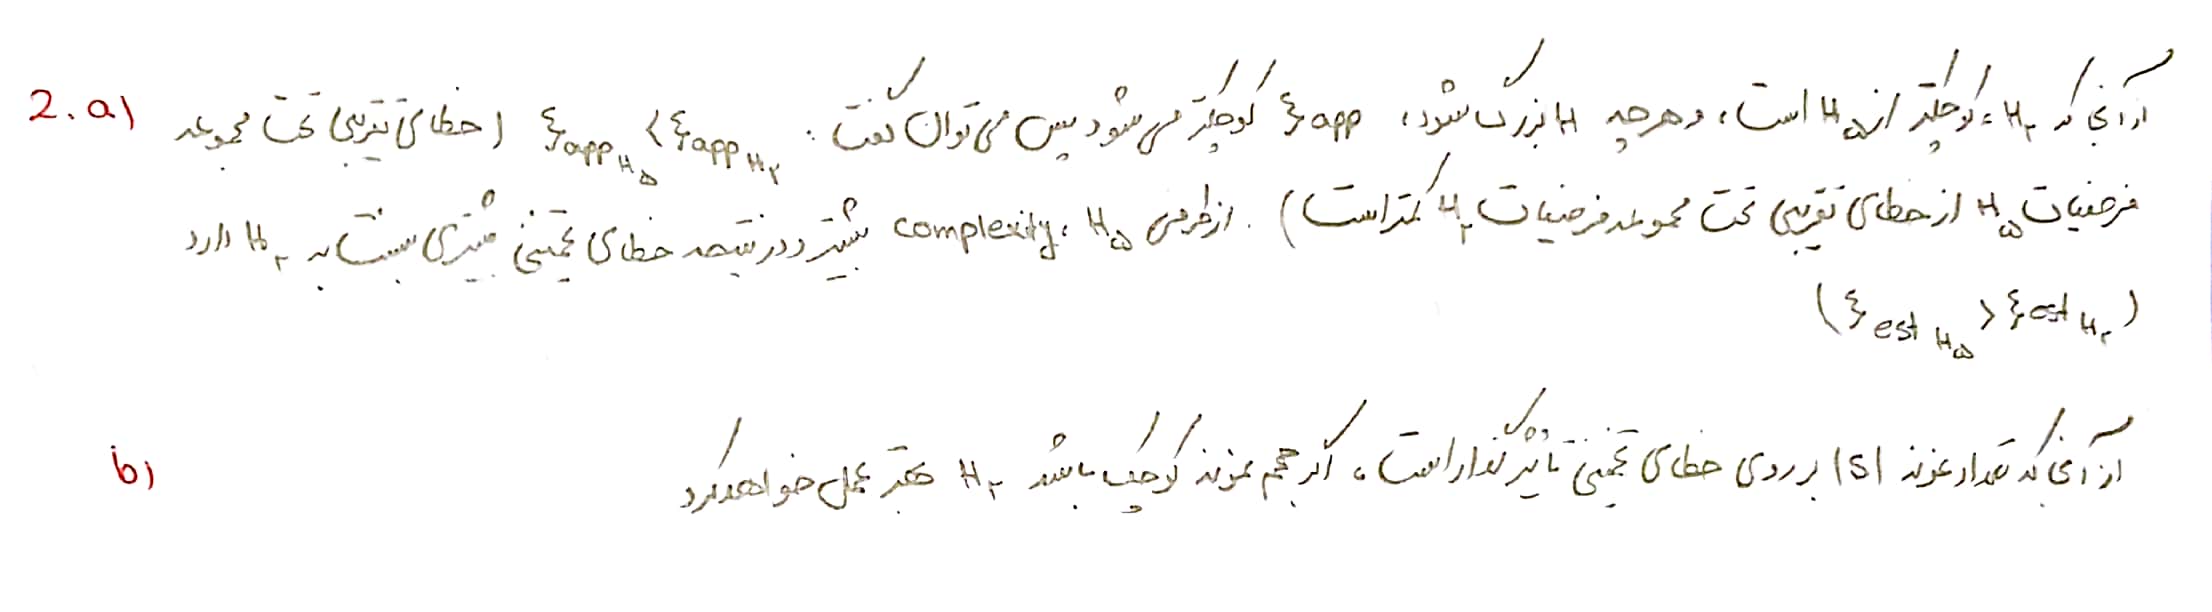 2.a) از آنجایی که H₂، کوچکتر از H₅ است، و هر چه H بزرگ شود، ξapp کوچکتر می شود پس می توان گفت: ξapp H₅ < ξapp H₂ (خطای تقریبی تحت مجموعه
فرضیات H₅ از خطای تقریبی تحت مجموعه فرضیات H₂ کمتر است). از طرفی H₅، complexity بیشتر و در نتیجه خطای تخمینی بیشتری نسبت به H₂ دارد
(ξest H₅ > ξest H₂)
b) از آنجایی که تعداد نمونه |S| بر روی خطای تخمینی تأثیر گذار است، اگر حجم نمونه کوچک باشد H₂ بهتر عمل خواهد کرد